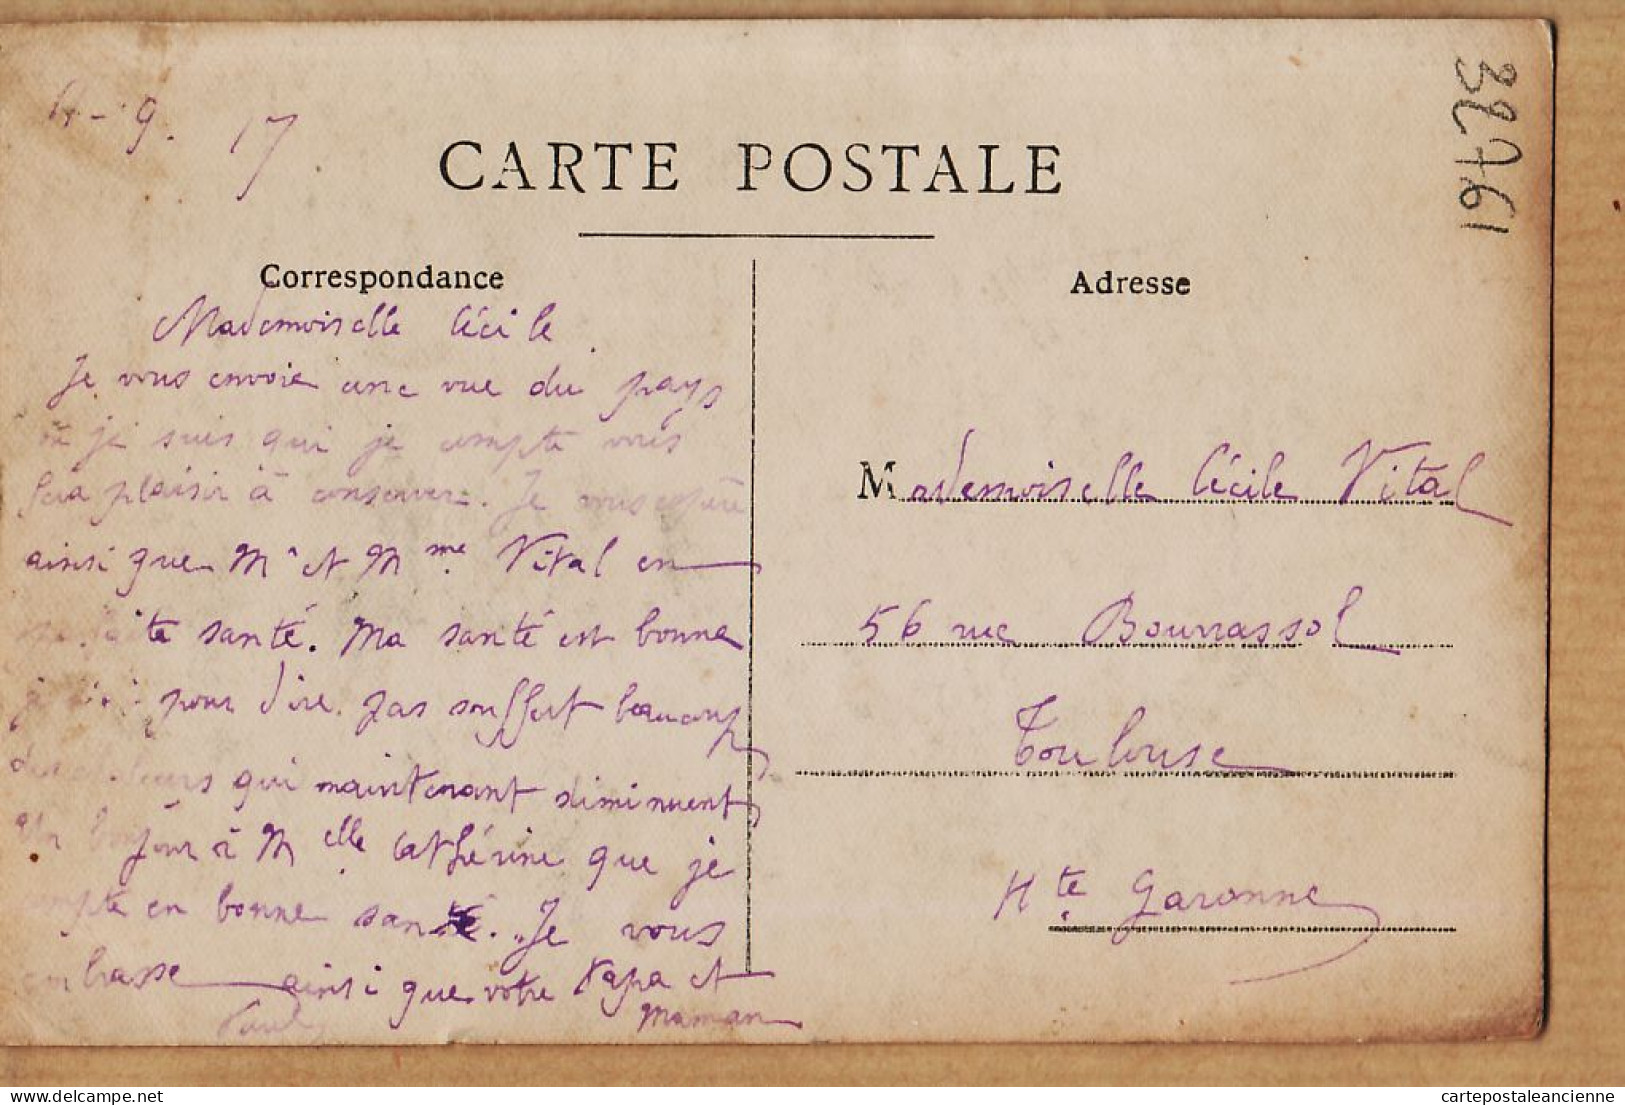 4-9. 17
32761
CARTE POSTALE
Correspondance
Adresse
Mademoiselle Cécile
Je vous envoie une vue du pays
où je suis qui je compte vous
fera plaisir à conserver. Je vous espère
ainsi que Mr et Mme Vital en
santé. Ma santé est bonne
pour dire pas souffert beaucoup
qui maintenant diminuent
Un bonjour à Melle Cathérine que je
compte en bonne santé. Je vous
embrasse ainsi que votre Papa et
Maman
Paul
Mademoiselle Cécile Vital
56 rue Bourrassol
Toulouse
Hte Garonne
delcampe.net
cartepostaleancienne